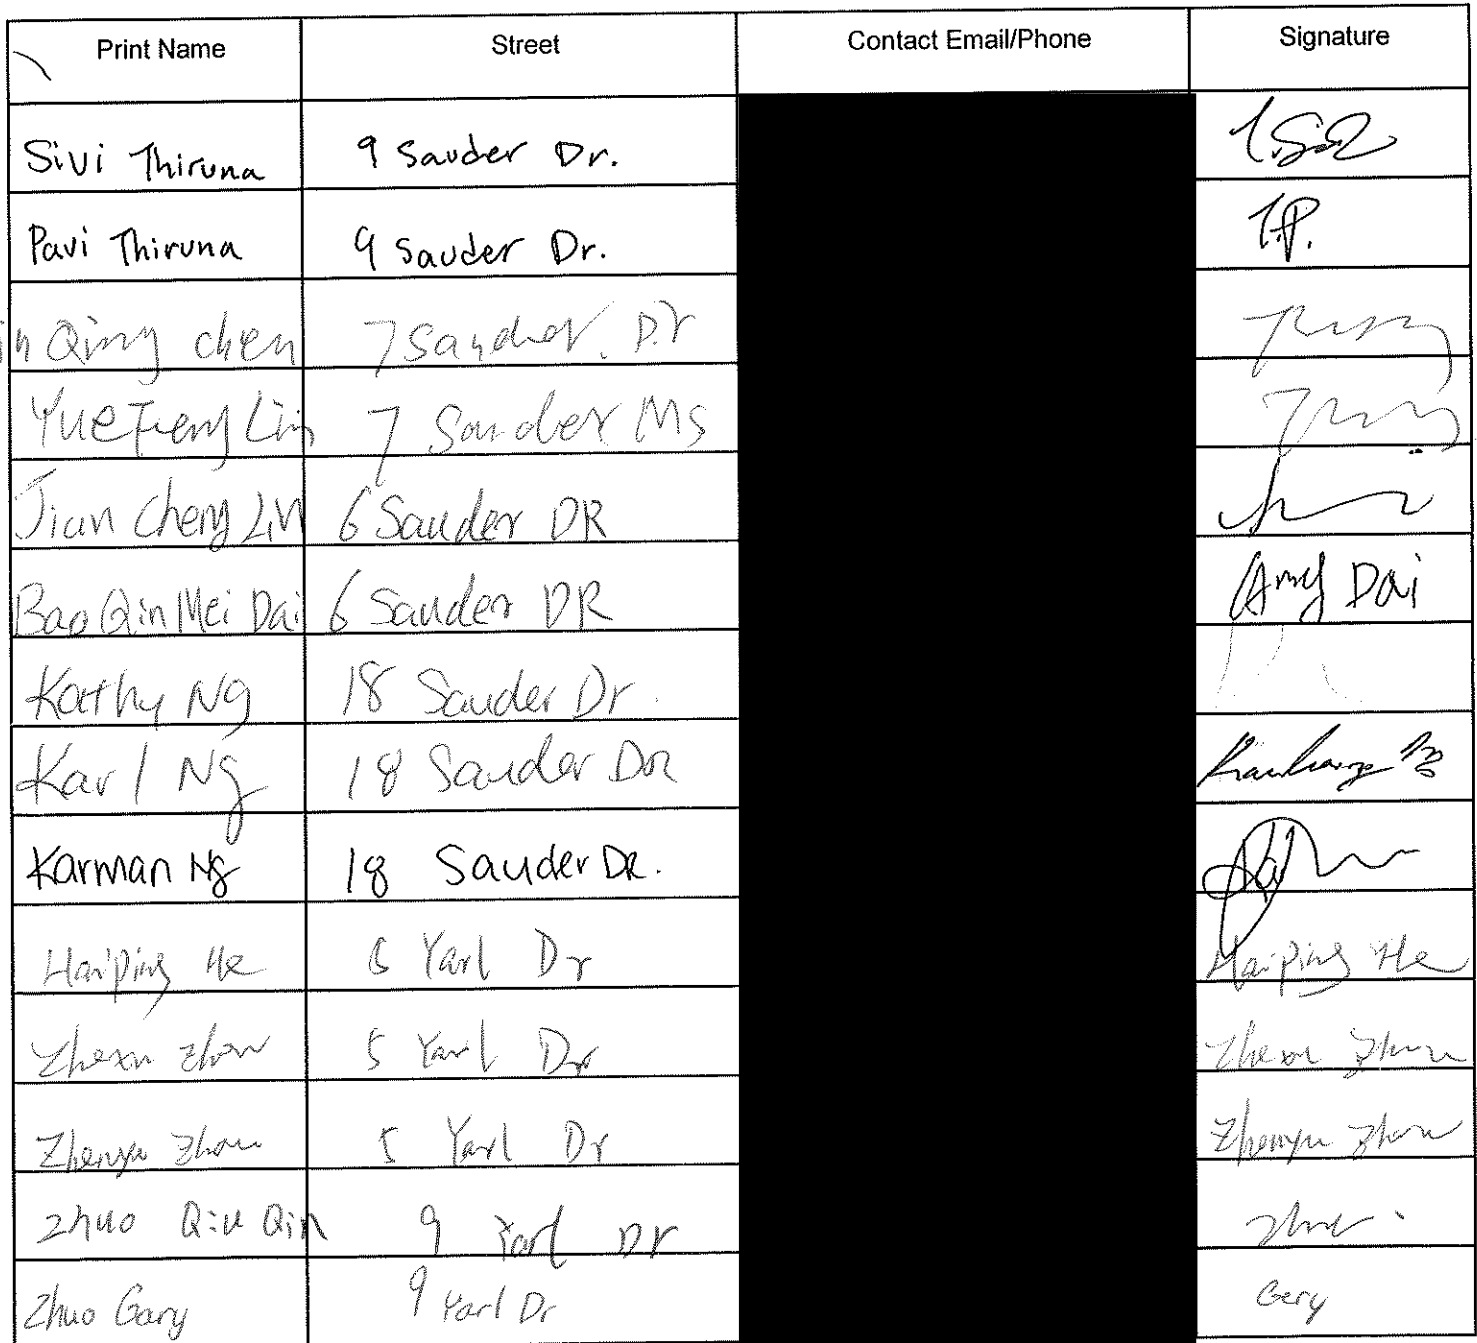 Print Name Street Contact Email/Phone Signature
Sivi Thiruna 9 Sauder Dr.
Pavi Thiruna 9 Sauder Dr. T.P.
Qing chen 7 Sauder. Dr
Yue Feng Lin 7 Sauder
Jian Cheng Lin 6 Sauder DR
Bao Qin Mei Dai 6 Sauder DR Amy Dai
Kathy Ng 18 Sauder Dr.
Karl Ng 18 Sauder DR
Karman Ng 18 Sauder DR.
Haiping He Yarl Dr Haiping He
Zhexu Zhou 5 Yarl Dr Zhexu Zhou
Zhenyu Zhou 5 Yarl Dr Zhenyu Zhou
Zhuo Qiu Qin 9 Yarl Dr
Zhuo Gary 9 Yarl Dr Gery